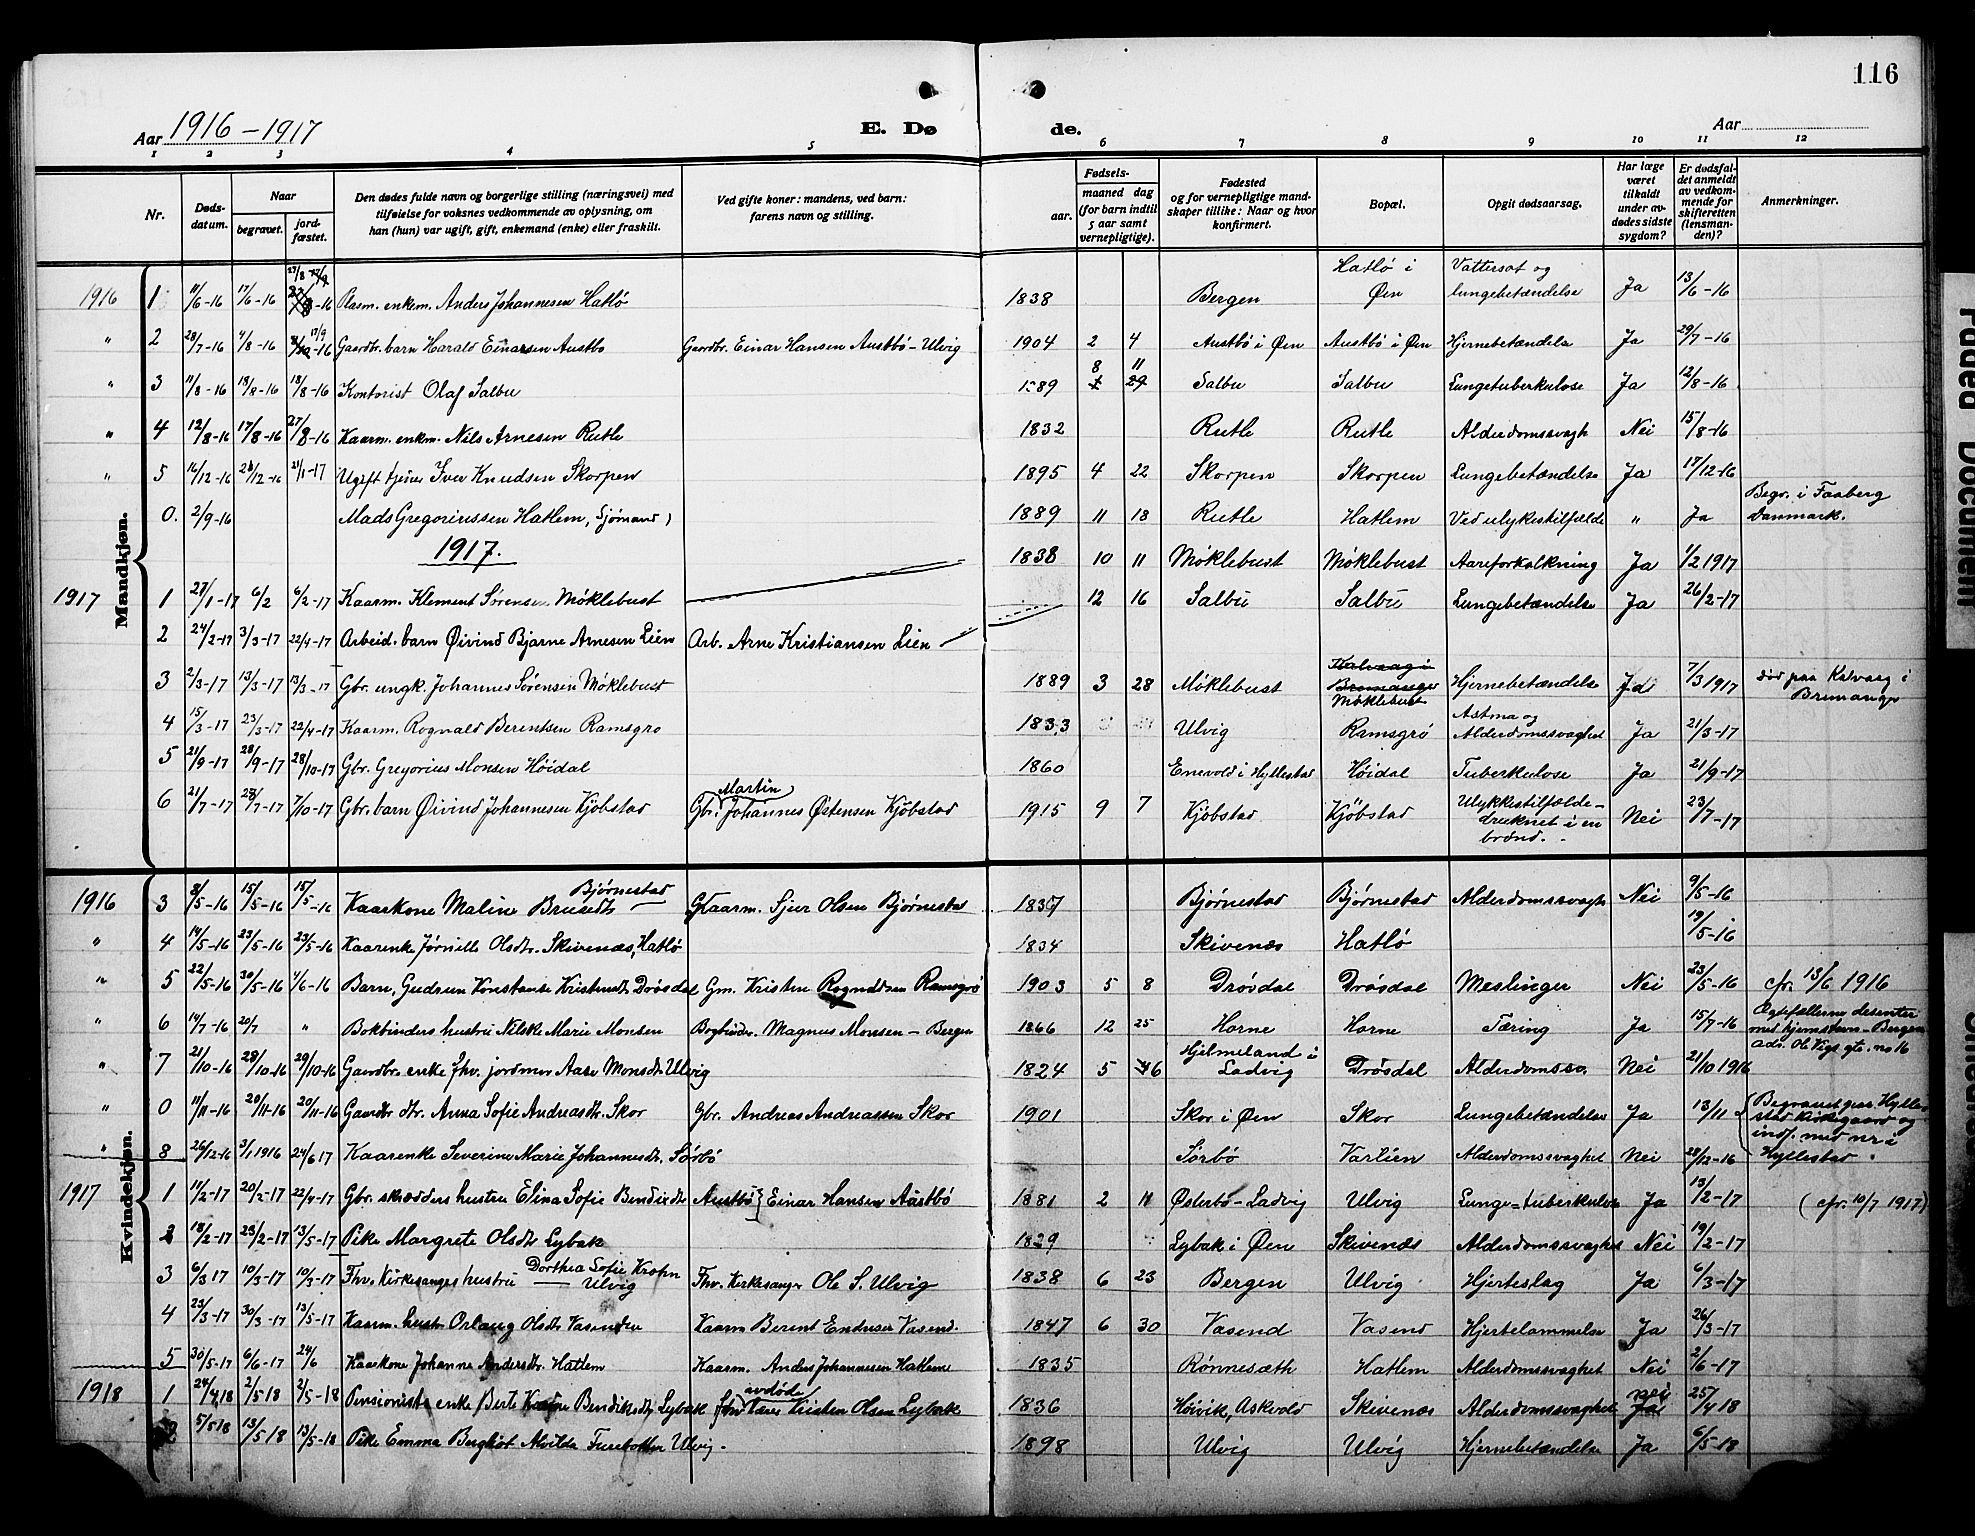 116
Aar 1916-1917
E. Dø de.
Aar
1 2 3 4 5 6 7 8 9 10 11 12
Nr.
Døds-datum.
Naar
begravet.
jord-fæstet.
Den dødes fulde navn og borgerlige stilling (næringsvei) med tilføielse for voksnes vedkommende av oplysning, om han (hun) var ugift, gift, enkemand (enke) eller fraskilt.
Ved gifte koner: mandens, ved barn: farens navn og stilling.
Fødsels-
aar.
maaned dag
(for barn indtil 5 aar samt vernepligtige).
Fødested og for vernepligtige mand-skaper tillike: Naar og hvor konfirmert.
Bopæl.
Opgit dødsaarsag.
Har læge været tilkaldt under av-dødes sidste sygdom?
Er dødsfal-det anmeldt av vedkom-mende for skifteretten (lensman-den)?
Anmerkninger.
Mandkjøn.
1916 1 11/6-16 17/6-16 27/8-16 Plasm. enkem. Anders Johannesen Hatlø 1838 Bergen Hatlø i Øen Vattersot og lungebetændelse Ja 13/6-16
" 2 28/7-16 4/8-16 17/9-16 Gaardbr. barn Harald Einarsen Austbø Gaardbr. Einar Hansen Austbø-Ulvig 1904 2 4 Austbø i Øen Austbø i Øen Hjernebetændelse Ja 29/7-16
" 3 11/8-16 18/8-16 18/8-16 Kontorist Olaf Salbu 1889 8 11 Salbu Salbu Lungetuberkulose Ja 12/8-16
" 4 12/8-16 17/8-16 27/8-16 Kaarm. enkm. Nils Arnesen Rutle 1832 Rutle Rutle Alderdomssvagh Nei 15/8-16
" 5 16/12-16 21/12-16 21/1-17 Ugift tjener Iver Knudsen Skorpen 1895 4 22 Skorpen Skorpen Lungebetændelse Ja 17/12-16
0. 2/9-16 Mads Gregoriussen Hatlem, (Sjømand) 1889 11 18 Rutle Hatlem Ved ulykestilfælde " Ja Begr. i Faaberg Danmark.
1917.
1917 1 27/1-17 6/2 6/2-17 Kaarm. Klement Sørensen Møklebust 1838 10 11 Møklebust Møklebust Aareforkalkning Ja 1/2 1917
2 24/2-17 3/3-17 22/4-17 Arbeid. barn Øivind Bjarne Arnesen Lien Arb. Arne Kristiansen Lien 12 16 Salbu Salbu Lungebetændelse Ja 26/2-17
3 2/3-17 13/3-17 13/3-17 Gbr. ungk. Johannes Sørensen Møklebust 1889 3 28 Møklebust Kalvaag i Bremanger Møklebust Hjernebetændelse Ja 7/3 1917 død paa Kalvaag i Bremanger
4 15/3-17 23/3-17 22/4-17 Kaarm. Rognald Berentsen Ramsgrø 1833 Ulvig Ramsgrø Astma og Alderdomssvaghet Ja 21/3-17
5 21/9-17 28/9-17 28/10-17 Gbr. Gregorius Monsen Høidal 1860 Enevold i Hyllestad Høidal Tuberkulose Ja 21/9-17
6 21/7-17 28/7-17 7/10-17 Gbr. barn Øivind Johannesen Kjøbstad Gbr. Martin Johannes Østensen Kjøbstad 1915 9 7 Kjøbstad Kjøbstad Ulykkestilfælde- druknet i en brønd. Nei 23/7-17
Kvindekjøn.
1916 3 8/5-16 15/5-16 15/5-16 Kaarkone Maline Brusedtr Bjørnestad Kaarm. Sjur Olsen Bjørnestad 1837 Bjørnestad Bjørnestad Alderdomssvagh Nei 9/5-16
" 4 14/5-16 23/5-16 23/5-16 Kaarenke Jørnille Olsdtr. Skivenæs, Hatlø 1834 Skivenæs Hatlø 19/5-16
" 5 22/5-16 30/5-16 4/6-16 Barn, Gudrun Konstanse Kristendtr Drøsdal Gm. Kristen Rognaldsen Ramsgrø 1903 5 8 Drøsdal Drøsdal Meslinger Nei 23/5-16 cfr. 13/6 1916
" 6 14/7-16 20/7 " Bokbinders hustru Nilske Marie Monsen Bogbinder. Magnus Monsen - Bergen 1866 12 25 Horne Horne Tæring Ja 15/7-16 Egtefællerne desenter med hjemstavn-Bergen adr. Ole Vigs gte. no 16
" 7 21/10-16 28/10-16 29/10-16 Gaardbr. enke fhv. jordmor Aase Monsdtr Ulvig 1824 5 6 Hjelmeland i Ladvig Drøsdal Alderdomssv. Nei 21/10 1916
" 0 11/11-16 20/11-16 20/11-16 Gaardbr dtr. Anna Sofie Andreasdtr. Skor Gbr. Andreas Andreassen Skor 1901 Skor i Øen Skor Lungebetændelse Ja 13/11 Begravet paa Hyllestad kirkegaard og indf. med nr i Hyllestad.
" 8 26/12-16 3/1 1916 24/6 17 Kaarenke Severine Marie Johannesdtr. Sørbø Sørbø Vartien Alderdomssvaghet Nei 28/12-16
1917 1 11/2-17 20/2-17 22/4-17 Gbr. skrædders hustru Elina Sofie Bendixdtr Austbø Einar Hansen Austbø 1881 2 11 Østerbø-Ladvig Ulvig Lunge-tuberkulose Ja 13/2-17 (cfr. 10/7 1917)
2 18/2-17 23/2-17 13/5-17 Pike Margrete Olsdtr Lybak 1829 Lybak i Øen Skivenæs Alderdomssvaghet Nei 19/2-17
3 6/3 17 10/3-17 10/3-17 Fhv. Kirkesangers hustru Dorthea Sofie Krohn Ulvig Fhv. Kirkesanger Ole S. Ulvig 1838 6 23 Bergen Ulvig Hjerteslag Ja 6/3-17
4 23/3-17 30/3-17 13/5-17 Kaarm. hustr Orlaug Olsdtr Vasenden Kaarm Berent Endresen Vasend. 1847 6 30 Vasend Vasend Hjertelammelse Ja 26/3-17
5 30/5-17 6/6-17 24/6 Kaarkone Johanne Andersdtr. Hatlem Kaarm. Anders Johannesen Hatlem 1835 Rønnesæth Hatlem Alderdomssvaghet Nei 2/6-17
1918 1 24/4 18 2/5 18 2/5-18 Pensionists enke Berte Bendiksdtr Lybak avdøde Kristen Olsen Lybak 1836 Høivik, Askvold Skivenæs Alderdomssvaghet nei Ja 25/4 18
2 5/5 18 13/5 18 13/5-18 Pike Emma Bergljot Alvilde Furebotten Ulvig. 1898 Ulvig Ulvig Hjernebetændelse Ja 6/5-18
Faded Document